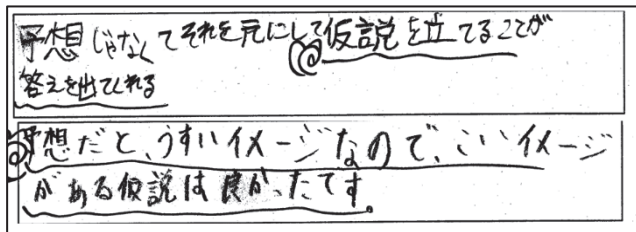 予想じゃなくてそれを元にして仮説を立てることが
答えを出てくれる
予想だと、うすいイメージなので、こいイメージ
がある仮説は良かったてす。